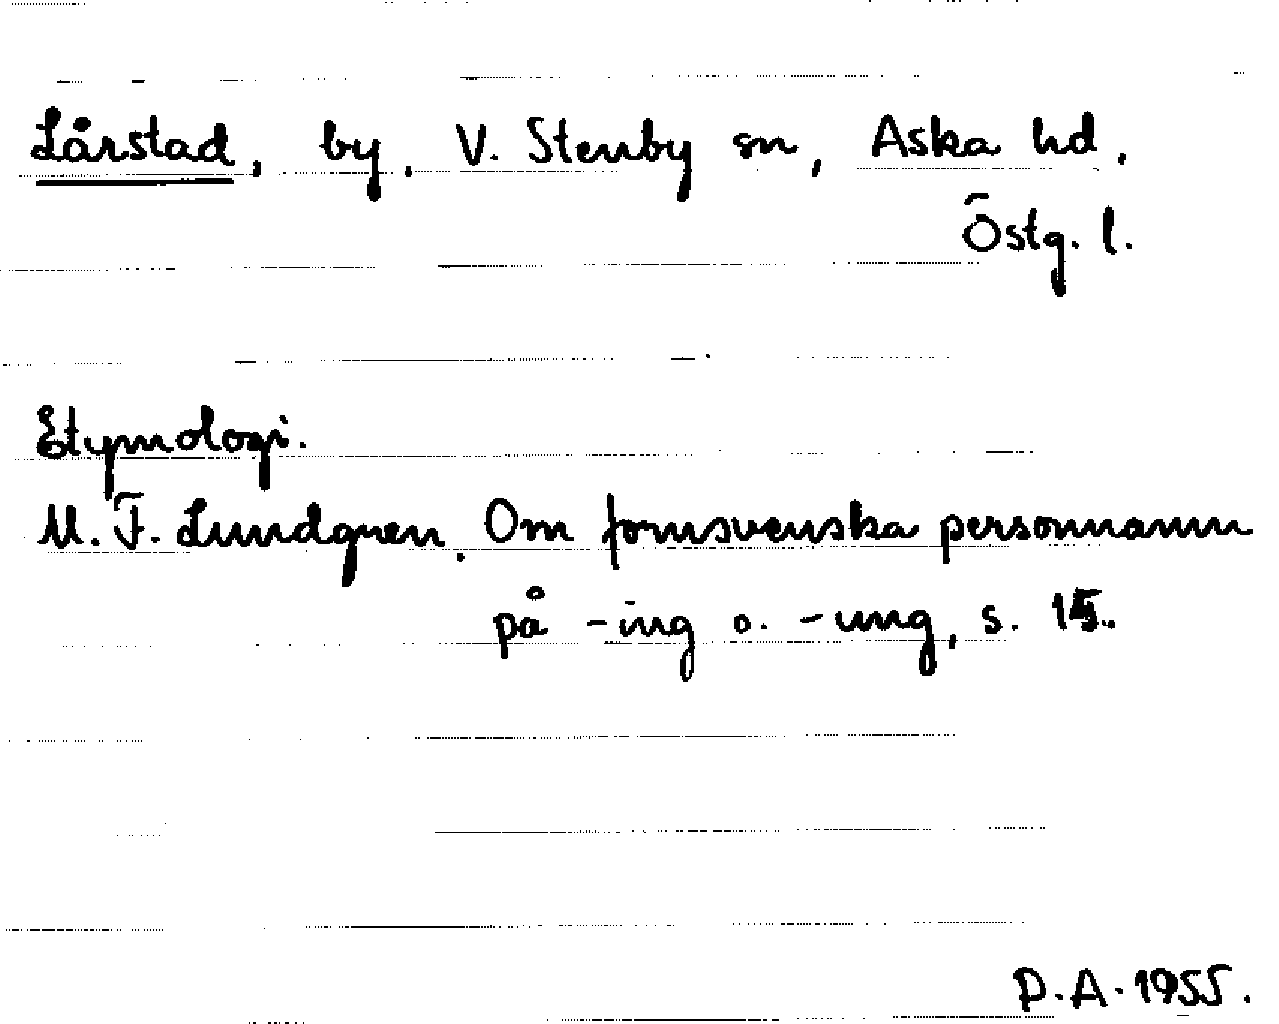 Lårstad, by, V. Stenby sn, Aska hd,
Östg. l.
Etymologi.
M. F. Lundgren. Om fornsvenska personnamn
på -ing o. -ung, s. 15.
P.A. 1955.